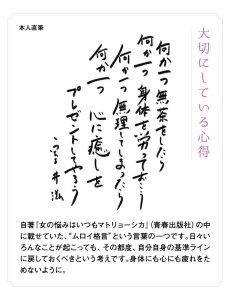 本人直筆
大切にしている心得
何か一つ無茶をしたら
何か一つ身体を労っておこう
何か一つ無理してしまったら
何か一つ心に癒しを
プレゼントしてやろう
自著『女の悩みはいつもマトリョーシカ』(青春出版社)の中
に載せていた、“ムロイ格言”という言葉の一つです。日々い
ろんなことが起こっても、その都度、自分自身の基準ライン
に戻しておくべきという考えです。身体にも心にも疲れをた
めないように。